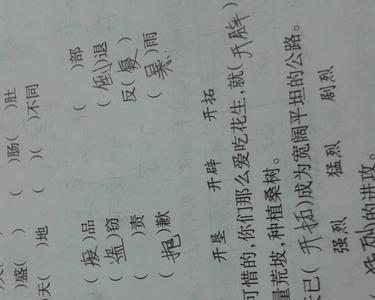 盛( ) ( )肠( )肚
天( )地 ( )( )不同
(废)品 ( )部
(盗)窃 (倒)退
( )责 反(复)
(抱)歉 ( )雨
开垦 开辟 开拓
可惜的,你们那么爱吃花生,就(开辟)
荒坡,种植桑树。
已(开拓)成为宽阔平坦的公路。
强烈 猛烈 剧烈
猛烈的进攻。